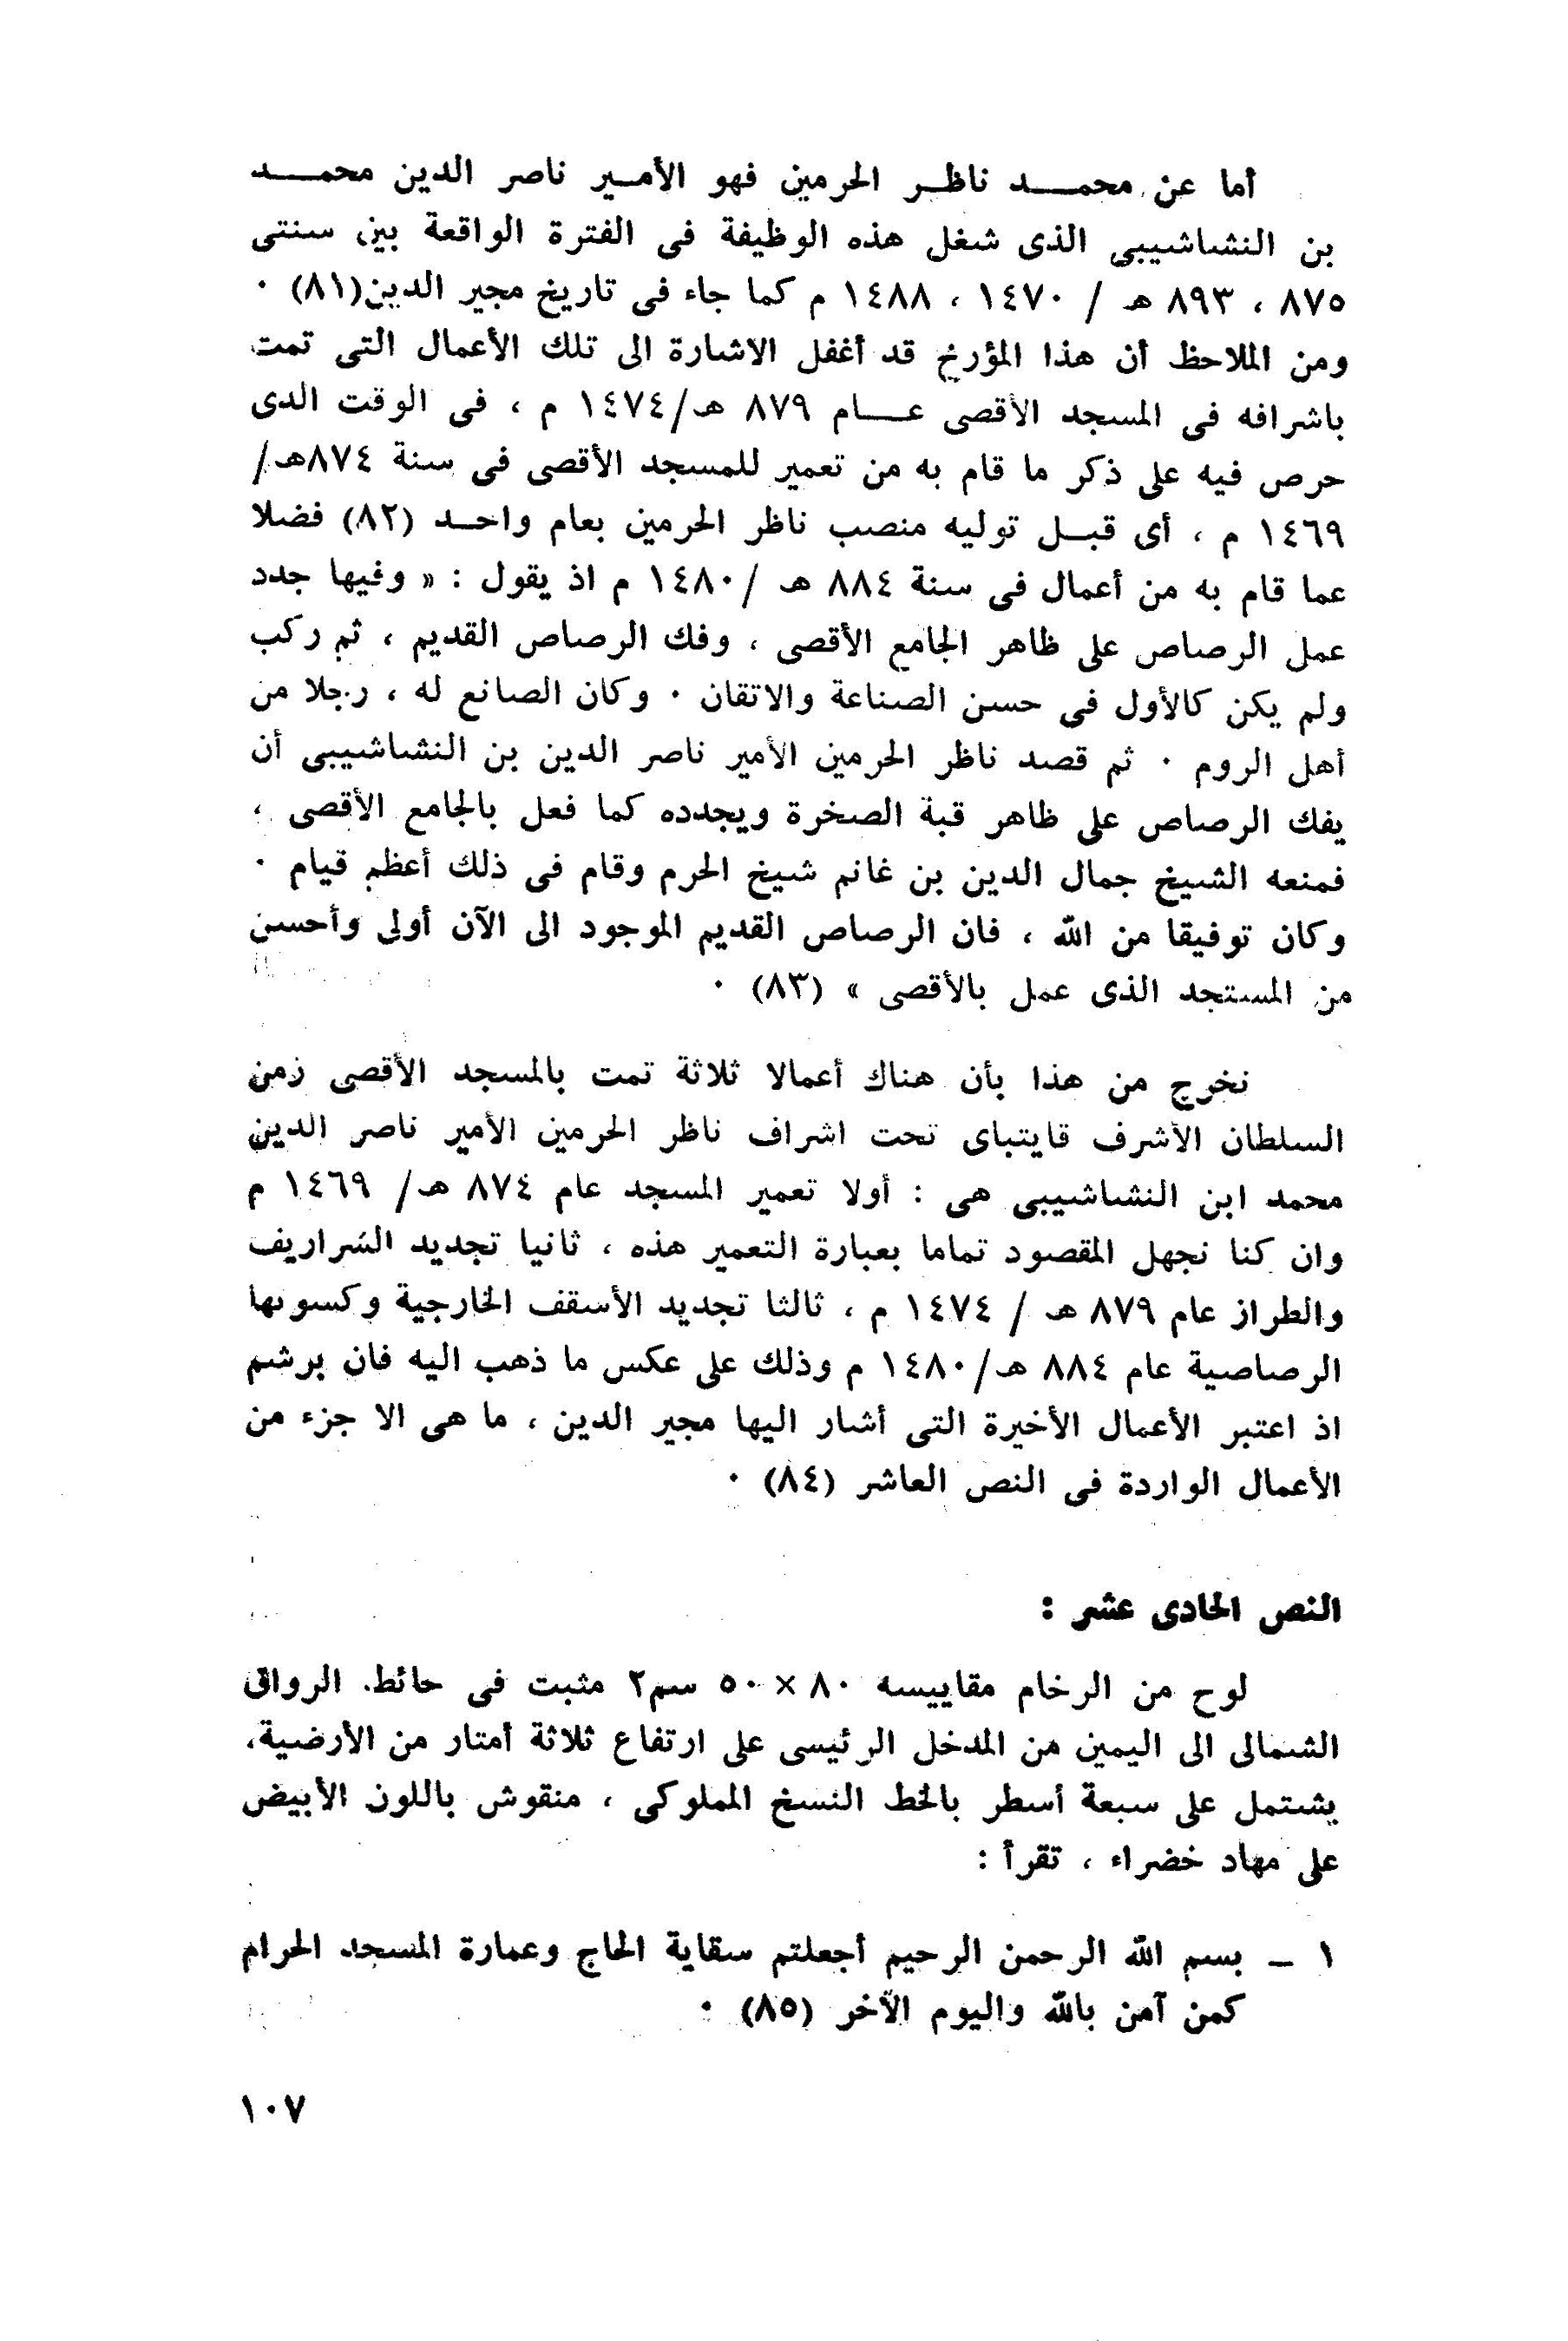 أما عن محمد ناظر الحرمين فهو الأمير ناصر الدين محمد
بن النشاشيبى الذى شغل هذه الوظيفة فى الفترة الواقعة بين سنتى
٨٧٥ ، ٨٩٣ هـ / ١٤٧٠ ، ١٤٨٨ م كما جاء فى تاريخ مجير الدين(٨١) ٠
ومن الملاحظ أن هذا المؤرخ قد أغفل الاشارة الى تلك الأعمال التى تمت
باشرافه فى المسجد الأقصى عام ٨٧٩ هـ/١٤٧٤ م ، فى الوقت الدى
حرص فيه على ذكر ما قام به من تعمير للمسجد الأقصى فى سنة ٨٧٤هـ/
١٤٦٩ م ، أى قبل توليه منصب ناظر الحرمين بعام واحد (٨٢) فضلا
عما قام به من أعمال فى سنة ٨٨٤ هـ /١٤٨٠ م اذ يقول : « وفيها جدد
عمل الرصاص على ظاهر الجامع الأقصى ، وفك الرصاص القديم ، ثم ركب
ولم يكن كالأول فى حسن الصناعة والاتقان ٠ وكان الصانع له ، رجلا من
أهل الروم ٠ ثم قصد ناظر الحرمين الأمير ناصر الدين بن النشاشيبى أن
يفك الرصاص على ظاهر قبة الصخرة ويجدده كما فعل بالجامع الأقصى ،
فمنعه الشيخ جمال الدين بن غانم شيخ الحرم وقام فى ذلك أعظم قيام ٠
وكان توفيقا من الله ، فان الرصاص القديم الموجود الى الآن أولى وأحسن
من المستجد الذى عمل بالأقصى » (٨٣) ٠
نخرج من هذا بأن هناك أعمالا ثلاثة تمت بالمسجد الأقصى زمن
السلطان الأشرف قايتباى تحت اشراف ناظر الحرمين الأمير ناصر الدين
محمد ابن النشاشيبى هى : أولا تعمير المسجد عام ٨٧٤ هـ/ ١٤٦٩ م
وان كنا نجهل المقصود تماما بعبارة التعمير هذه ، ثانيا تجديد الشراريف
والطراز عام ٨٧٩ هـ / ١٤٧٤ م ، ثالثا تجديد الأسقف الخارجية وكسوتها
الرصاصية عام ٨٨٤ هـ/١٤٨٠ م وذلك على عكس ما ذهب اليه فان برشم
اذ اعتبر الأعمال الأخيرة التى أشار اليها مجير الدين ، ما هى الا جزء من
الأعمال الواردة فى النص العاشر (٨٤) ٠
النص الحادى عشر :
لوح من الرخام مقاييسه ٨٠ × ٥٠ سم٢ مثبت فى حائط الرواق
الشمالى الى اليمين من المدخل الرئيسى على ارتفاع ثلاثة أمتار من الأرضية،
يشتمل على سبعة أسطر بالخط النسخ المملوكى ، منقوش باللون الأبيض
على مهاد خضراء ، تقرأ :
١ ـ بسم الله الرحمن الرحيم أجعلتم سقاية الحاج وعمارة المسجد الحرام
كمن آمن بالله واليوم الآخر (٨٥) ٠
١٠٧